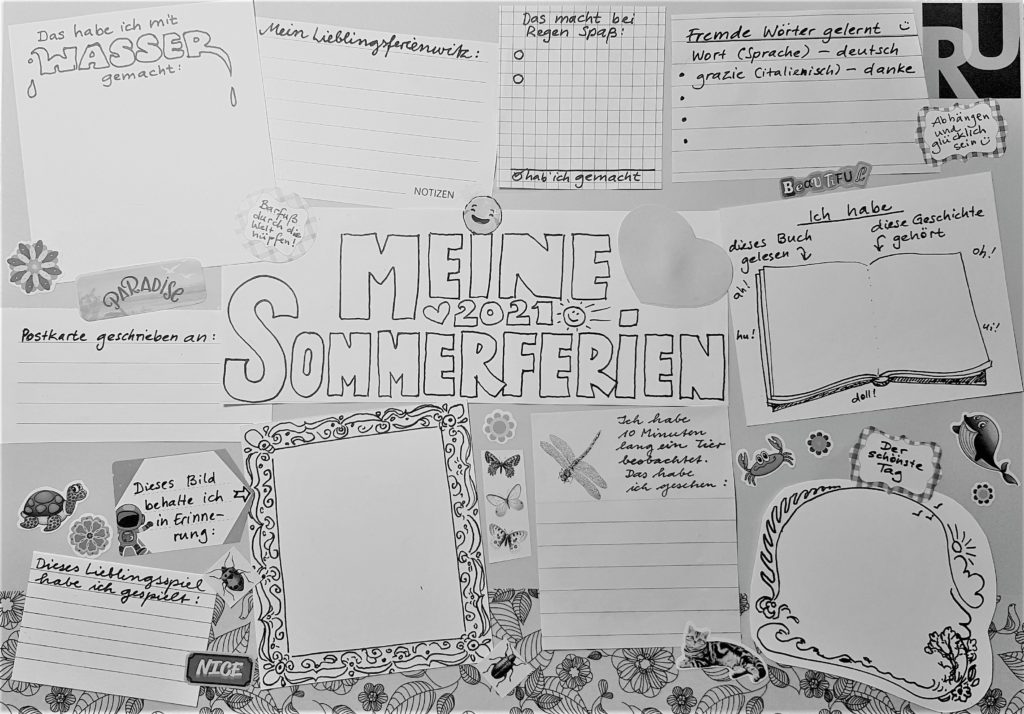 Das habe ich mit
WASSER
gemacht:
Mein Lieblingsferienwitz:
NOTIZEN
Das macht bei
Regen Spaß:
hab' ich gemacht
Fremde Wörter gelernt
Wort (Sprache) – deutsch
grazie (italienisch) – danke
RU
Abhängen
und
glücklich
sein
BEAUTIFUL
Barfuß
durch die
Welt
hüpfen!
PARADISE
MEINE
2021
SOMMERFERIEN
Ich habe
dieses Buch
gelesen
diese Geschichte
gehört
ah!
oh!
hu!
ui!
doll!
Postkarte geschrieben an:
Dieses Bild
behalte ich
in Erinne-
rung:
Ich habe
10 Minuten
lang ein Tier
beobachtet.
Das habe
ich gesehen:
Der
schönste
Tag
Dieses Lieblingsspiel
habe ich gespielt:
NICE